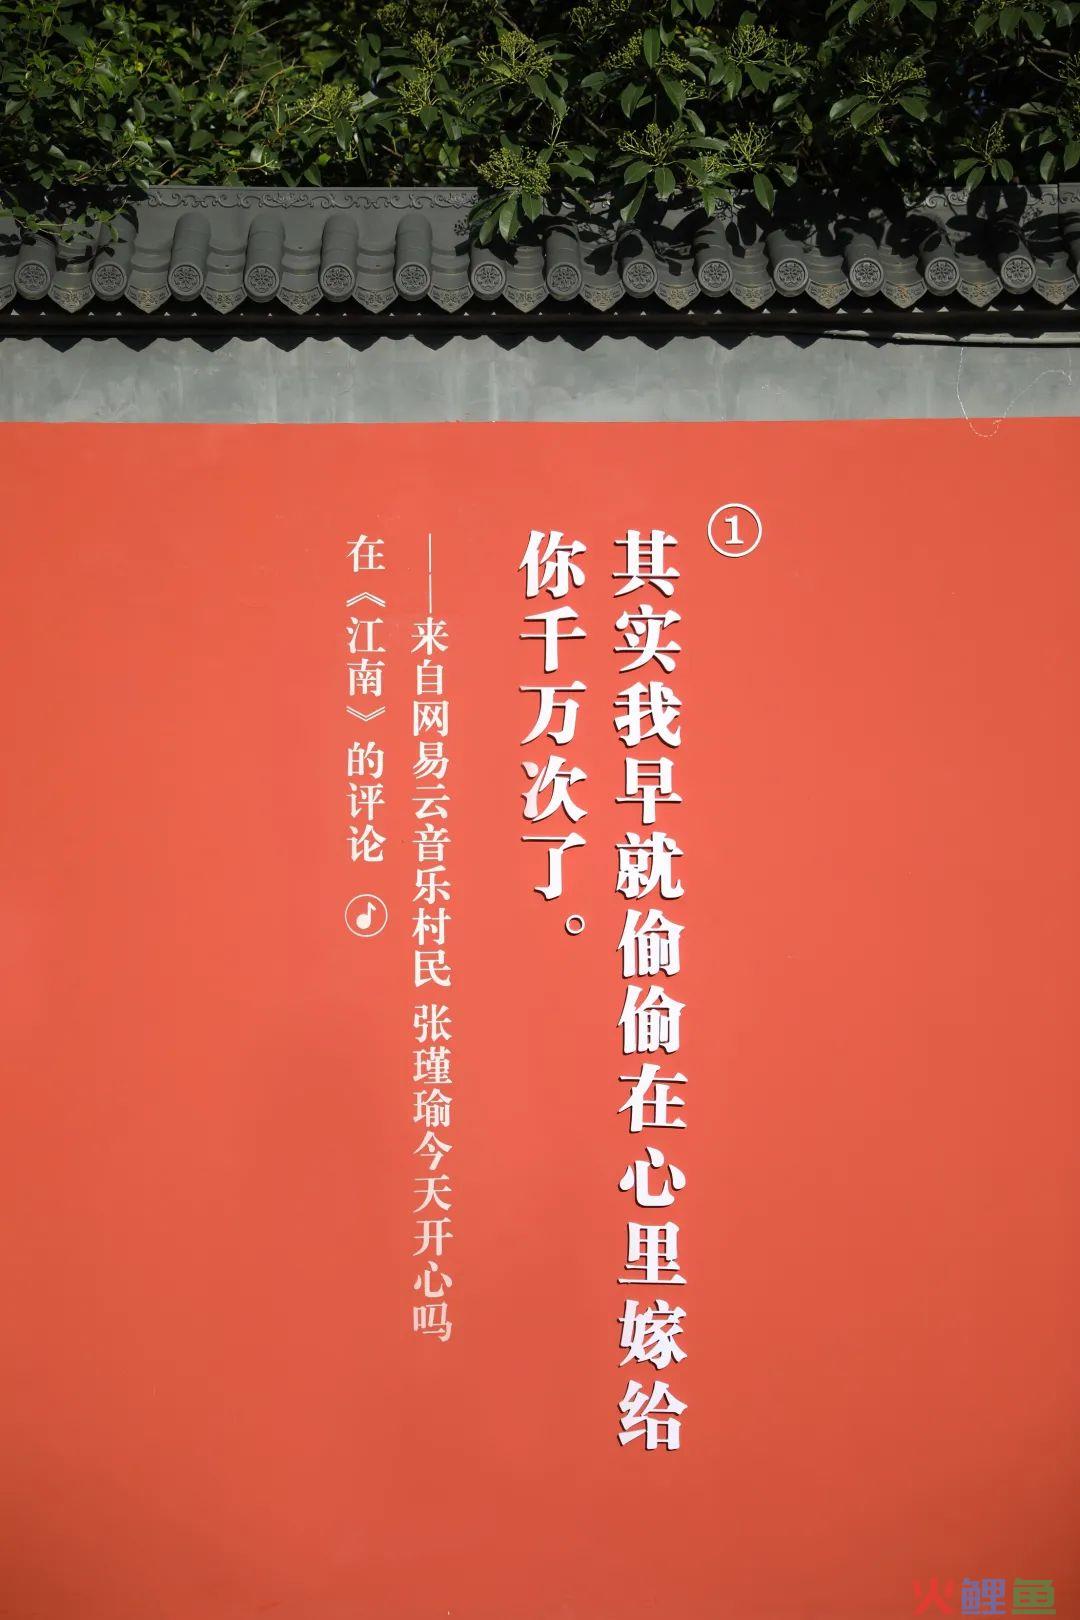 ①
其实我早就偷偷在心里嫁给
你千万次了。
——来自网易云音乐村民 张瑾瑜今天开心吗
在《江南》的评论
火鲤鱼